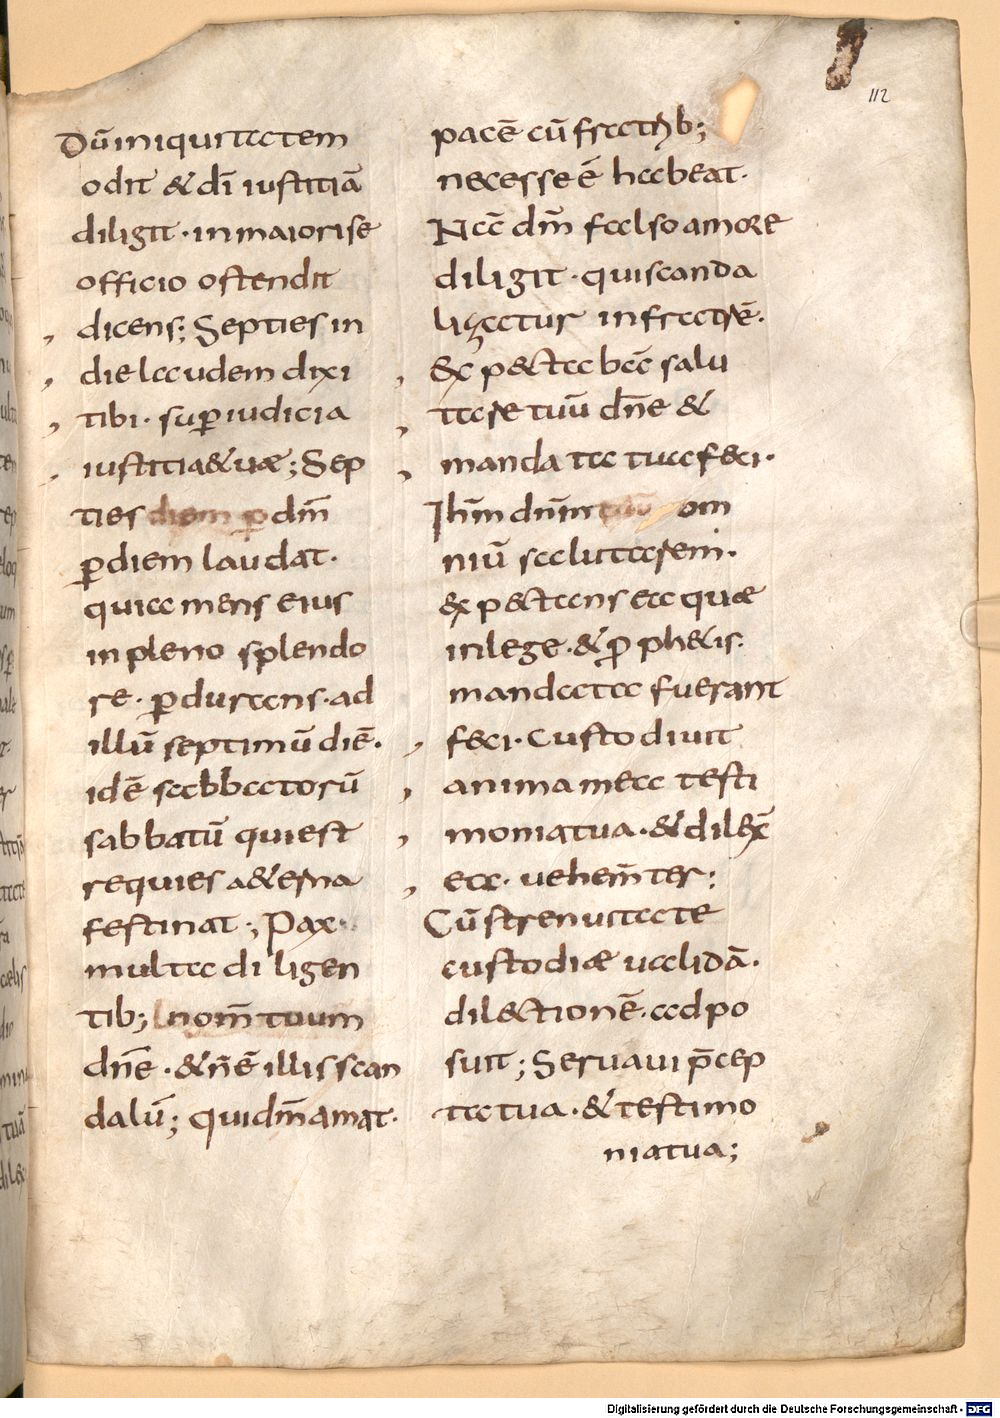 112
Dū iniquitatem
odit & dī iustitiā
diligit · in maiorise
officio ostendit
dicens; Septies in
die laudem dixi
tibi · sup iudicia
iustitia&uæ; Sep
ties diem p dm̄
p diem laudat ·
quia mens eius
in pleno splendo
re · p durans · ad
illū septimū diē ·
idē sabbatorū
sabbatū qui est
requies a&erna
festinat; Pax
multa diligen
tib; nom̄ tuum
dn̄e · & n̄ ē illis scan
dalū; qui dm̄ amat ·
pacē cū fratrib;
necesse ē habeat ·
Nā dm̄ falso amore
diligit · qui scanda
lizatur in fratrē ·
Exp&tabā salu
tare tuū dn̄e &
mandata tua feci ·
Ihm̄ dnm̄ om
niū salutarem ·
exp&tans ea quæ
in lege · & p ph&is ·
mandata fuerant
feci · Custodiuit
anima mea testi
monia tua · & dilex̄
ea · uehem̄ter ;
Cū strenuitate
custodiæ ualidā ·
dil&tionē · adpo
suit; Seruaui p̄cep
ta tua · & testimo
nia tua;
Digitalisierung gefördert durch die Deutsche Forschungsgemeinschaft - DFG